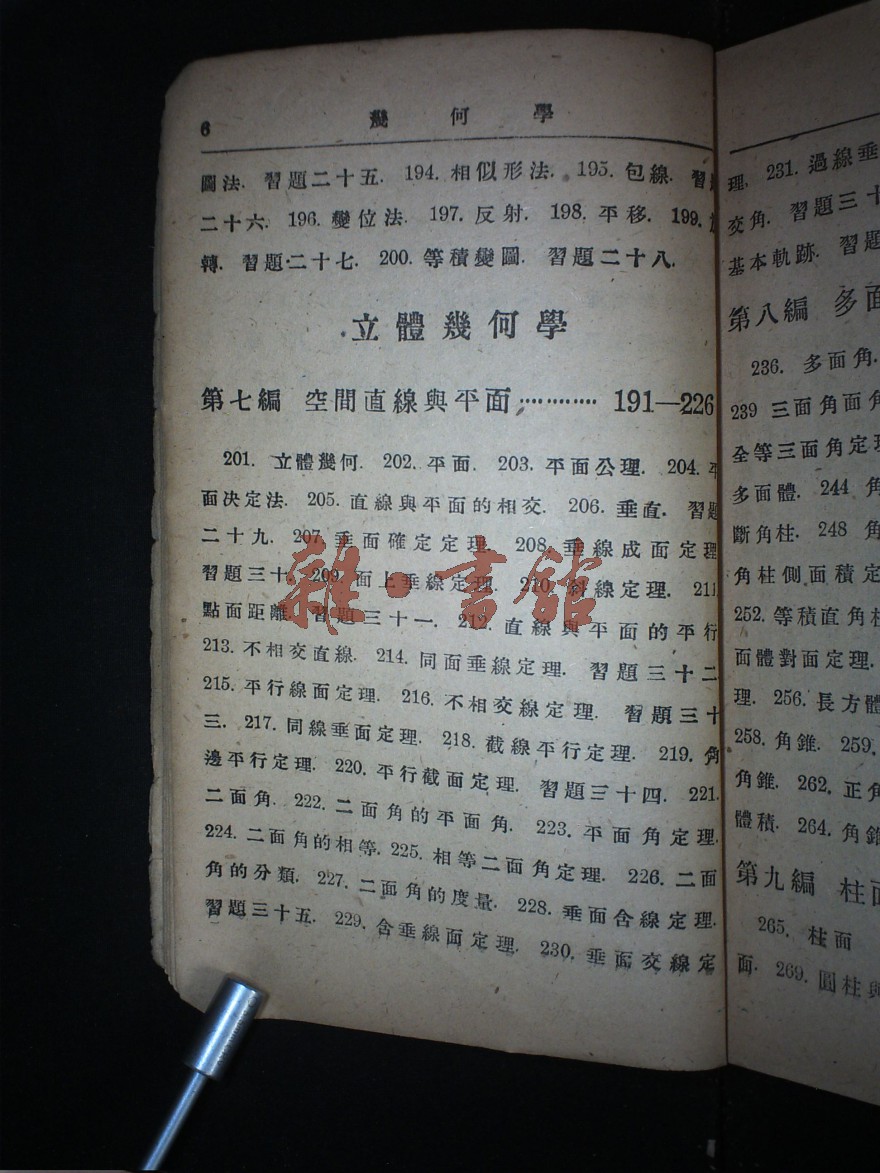 6 幾何學
圖法. 習題二十五. 194. 相似形法. 195. 包線. 習
二十六. 196. 變位法. 197. 反射. 198. 平移. 199.
轉. 習題二十七. 200. 等積變圖. 習題二十八.
立體幾何學
第七編 空間直線與平面………… 191—226
201. 立體幾何. 202. 平面. 203. 平面公理. 204. 平
面決定法. 205. 直線與平面的相交. 206. 垂直. 習題
二十九. 207. 垂面確定定理. 208. 垂線成面定理
習題三十. 209. 面上垂線定理. 210. 斜線定理. 211.
點面距離. 習題三十一. 212. 直線與平面的平行
213. 不相交直線. 214. 同面垂線定理. 習題三十二
215. 平行線面定理. 216. 不相交線定理. 習題三十
三. 217. 同線垂面定理. 218. 截線平行定理. 219. 角
邊平行定理. 220. 平行截面定理. 習題三十四. 221.
二面角. 222. 二面角的平面角. 223. 平面角定理.
224. 二面角的相等. 225. 相等二面角定理. 226. 二面
角的分類. 227. 二面角的度量. 228. 垂面含線定理.
習題三十五. 229. 含垂線面定理. 230. 垂面交線定
雜·書館
理. 231. 過線垂
交角. 習題三十
基本軌跡. 習題
第八編 多面
236. 多面角.
239 三面角面角
全等三面角定理
多面體. 244 角
斷角柱. 248 角
角柱側面積定
252. 等積直角柱
面體對面定理.
理. 256. 長方體
258. 角錐. 259.
角錐. 262. 正角
體積. 264. 角錐
第九編 柱面
265. 柱面
面. 269. 圓柱與